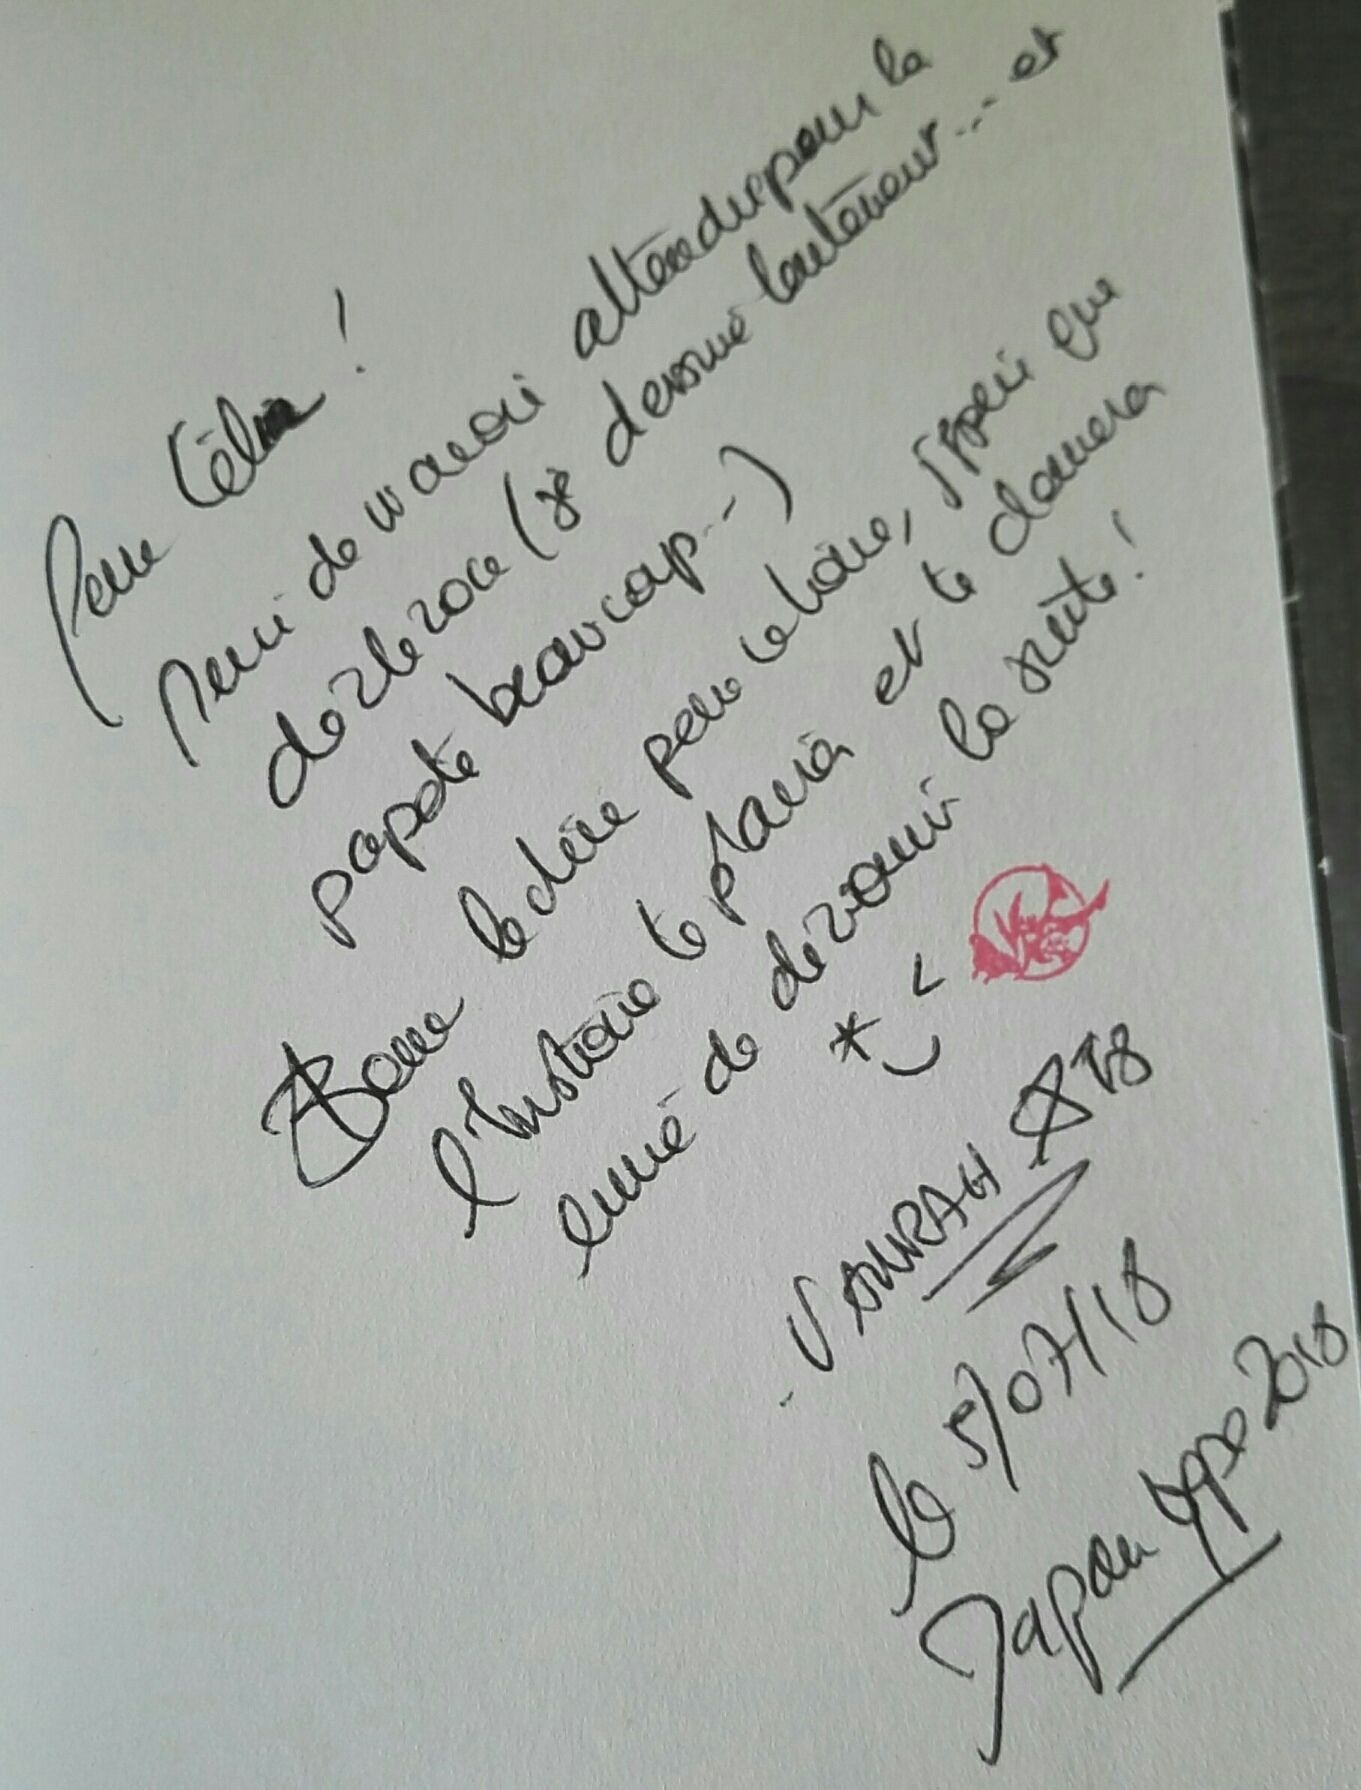 Pour Célia !
Merci de m'avoir attendu pour la
dédicace (je dessine lentement... et
papote beaucoup...)
Bonne lecture pour le tome, j'espère que
l'histoire te plaira et te donnera
envie de découvrir la suite !
le 5/07/18
Japan Expo 2018